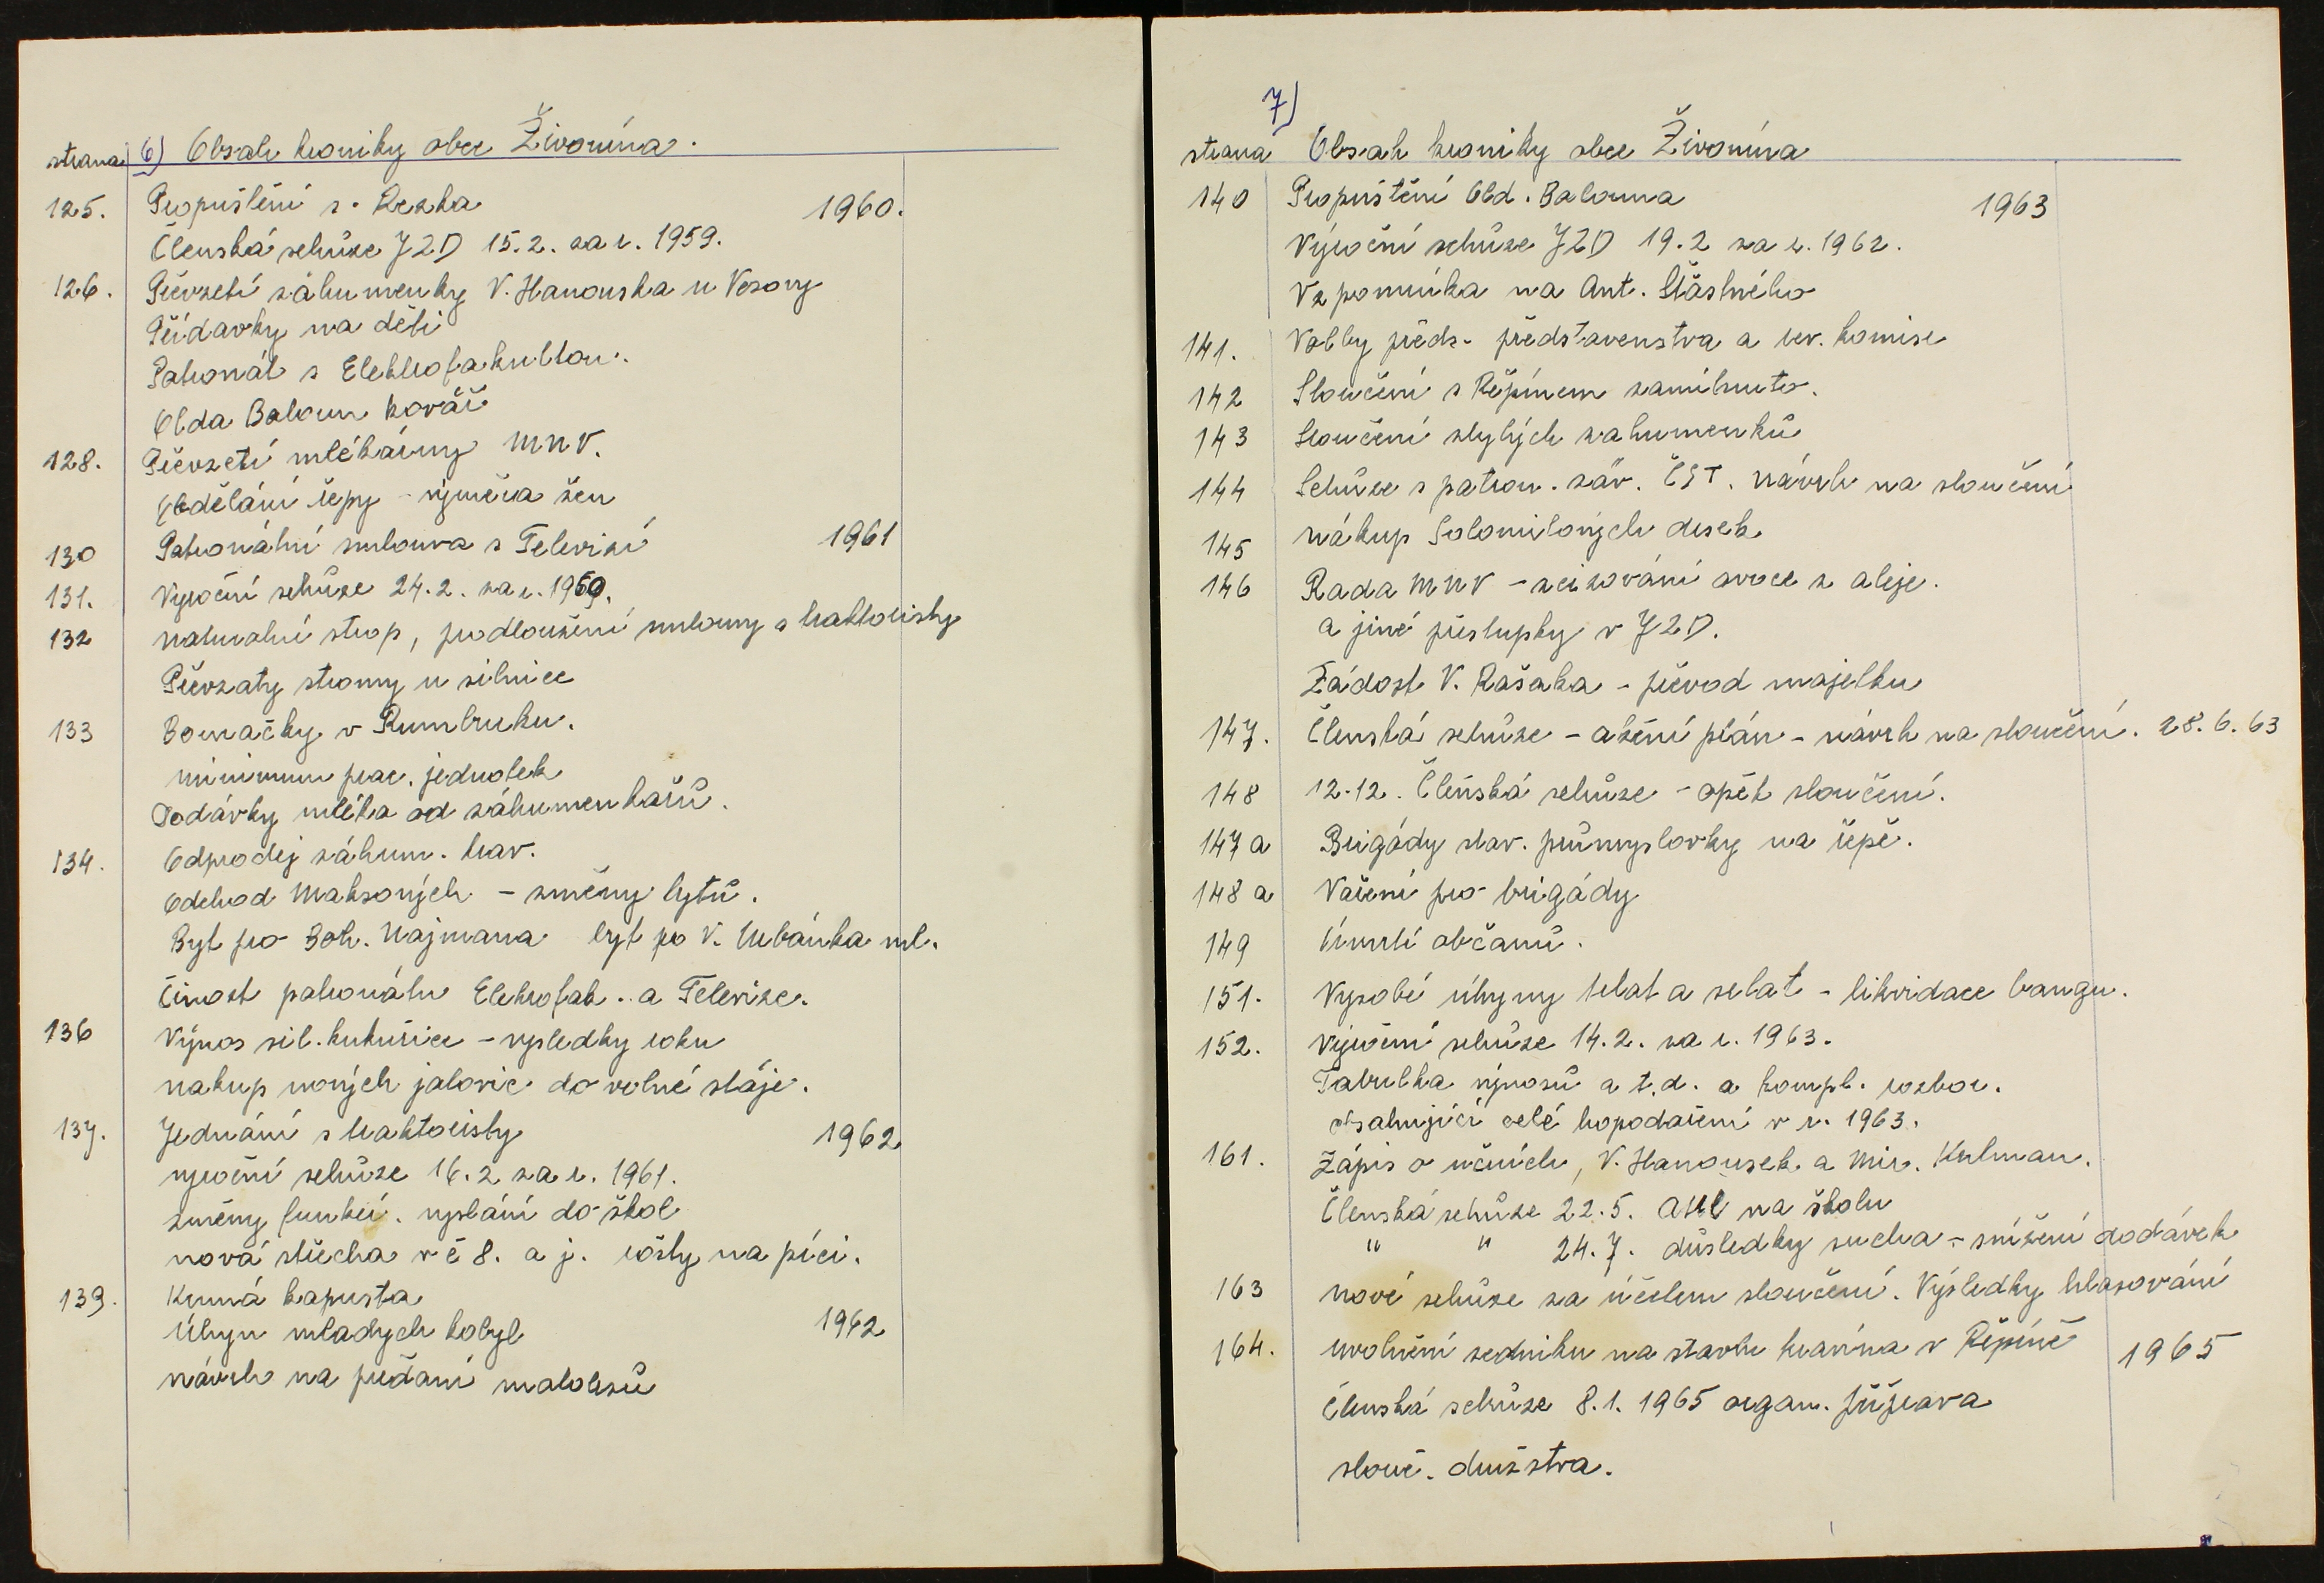 strana 6) Obsah kroniky obce Živonína.
125. Propuštění s. Rezka 1960.
Členská schůze JZD 15.2. za r. 1959.
126. Převzetí záhumenky V. Hanouska u Vesony
Přídavky na děti
Patronát s Elektrofakultou.
Olda Baloun kovář
128. Převzetí mlékárny MNV.
Obdělání řepy - výměra žen
130 Patronátní smlouva s Televisí 1961
131. Vyroční schůze 24.2. za r. 1960.
132 naturalní strop, prodloužení smlouvy s traktoristy
Převzaty stromy u silnice
133 Domačky v Rumburku.
minimum prac. jednotek
Dodávky mléka od záhumenkařů.
134. Odprodej záhum. krav.
Odchod Maksových - směny bytů.
Byt pro Boh. Najmana byt po V. Urbánka ml.
Činost patronátu Elektrofak. a Televize.
136 Výnos sil. kukuřice - vysledky roku
nakup nových jalovic do volné stáje.
137. Jednání s traktoristy 1962
vyroční schůze 16.2 za r. 1961.
změny funkcí. vyslání do škol
nová střecha v č 8. a j. rošty na píci.
139. Krmná kapusta
Úhyn mladych kobyl 1962
návrh na předání malolesů
7)
strana Obsah kroniky obce Živonína
140 Propuštění Old. Balouna 1963
Výroční schůze JZD 19.2 za r. 1962.
Vzpomínka na Ant. Šťástného
141. Volby předs. představenstva a rev. komise
142 Sloučení s Řepínem zamítnuto.
143 Sloučení zbylých zahumenků
144 Schůze s patron. záv. ČST. návrh na sloučení
145 nákup Solomitových desek
146 Rada MNV - zcizování ovoce z aleje.
a jiné přestupky v JZD.
Žádost V. Rašaka - převod majetku
147. Členská schůze - ažení plán - návrh na sloučení. 28.6.63
148 12.12. Členská schůze - opět sloučení.
147 a Brigády stav. průmyslovky na řepě.
148 a Vaření pro brigády
149 Úmrtí občanů.
151. Vysoké úhyny telat a selat - likvidace bangu.
152. Výroční schůze 14.2. za r. 1963.
Tabulka výnosů a t.d. a kompl. rozbor.
obsahující celé hopodaření v r. 1963.
161. Zápis o učních, V. Hanousek a Mir. Kulman.
Členská schůze 22.5. na školu
" " 24.7. důsledky sucha - snížení dodávek
163 nové schůze za účelem sloučení. Výsledky hlasování
164. uvolnění zedniku na stavbu kravína v Řepíně 1965
Členská schůze 8.1. 1965 organ. příprava
slouč. družstva.